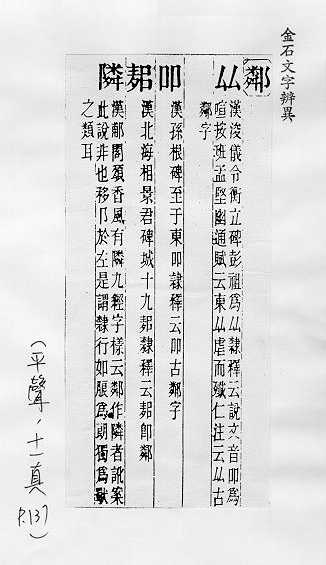 金石文字辨異
鄰
厸
漢浚儀令衡立碑彭祖為厸隸釋云說文音叩為
喧按班孟堅幽通賦云東厸虐而殲仁注云厸古
鄰字
叩
漢孫根碑至于東叩隸釋云叩古鄰字
漢北海相景君碑城十九隸釋云卽鄰
隣
漢郙閣頌香風有隣九經字樣云鄰作隣者訛案
此說非也移阝於左是謂隸行如為朗獨為
之類耳
(平聲，十一真 P.137)